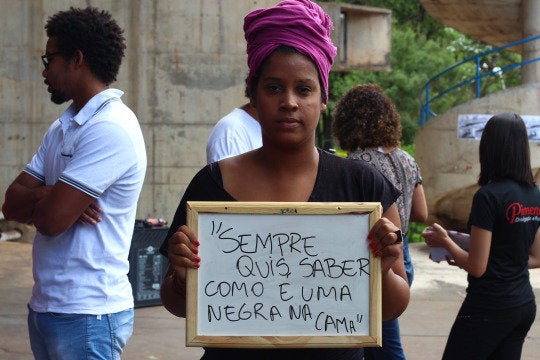 "SEMPRE
QUIS SABER
COMO É UMA
NEGRA NA CAMA"